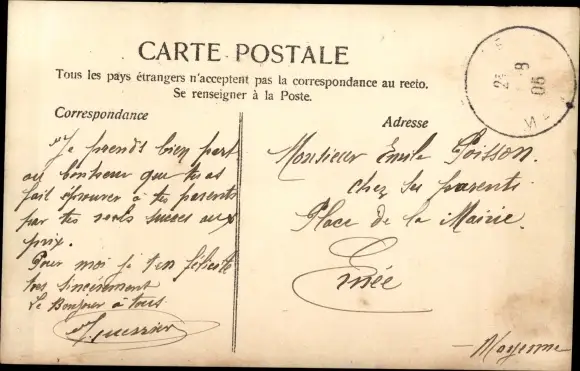 CARTE POSTALE
Tous les pays étrangers n'acceptent pas la correspondance au recto.
Se renseigner à la Poste.
Correspondance
Je prends bien part
au bonheur que tu as
fait éprouver à tes parents
par tes réels succès aux
prix.
Pour moi je t'en félicite
très sincèrement
Le Bonjour à tous
Guerrier
Adresse
Monsieur Emile Poisson.
chez ses parents
Place de la Mairie.
Ernée
Mayenne
8
05